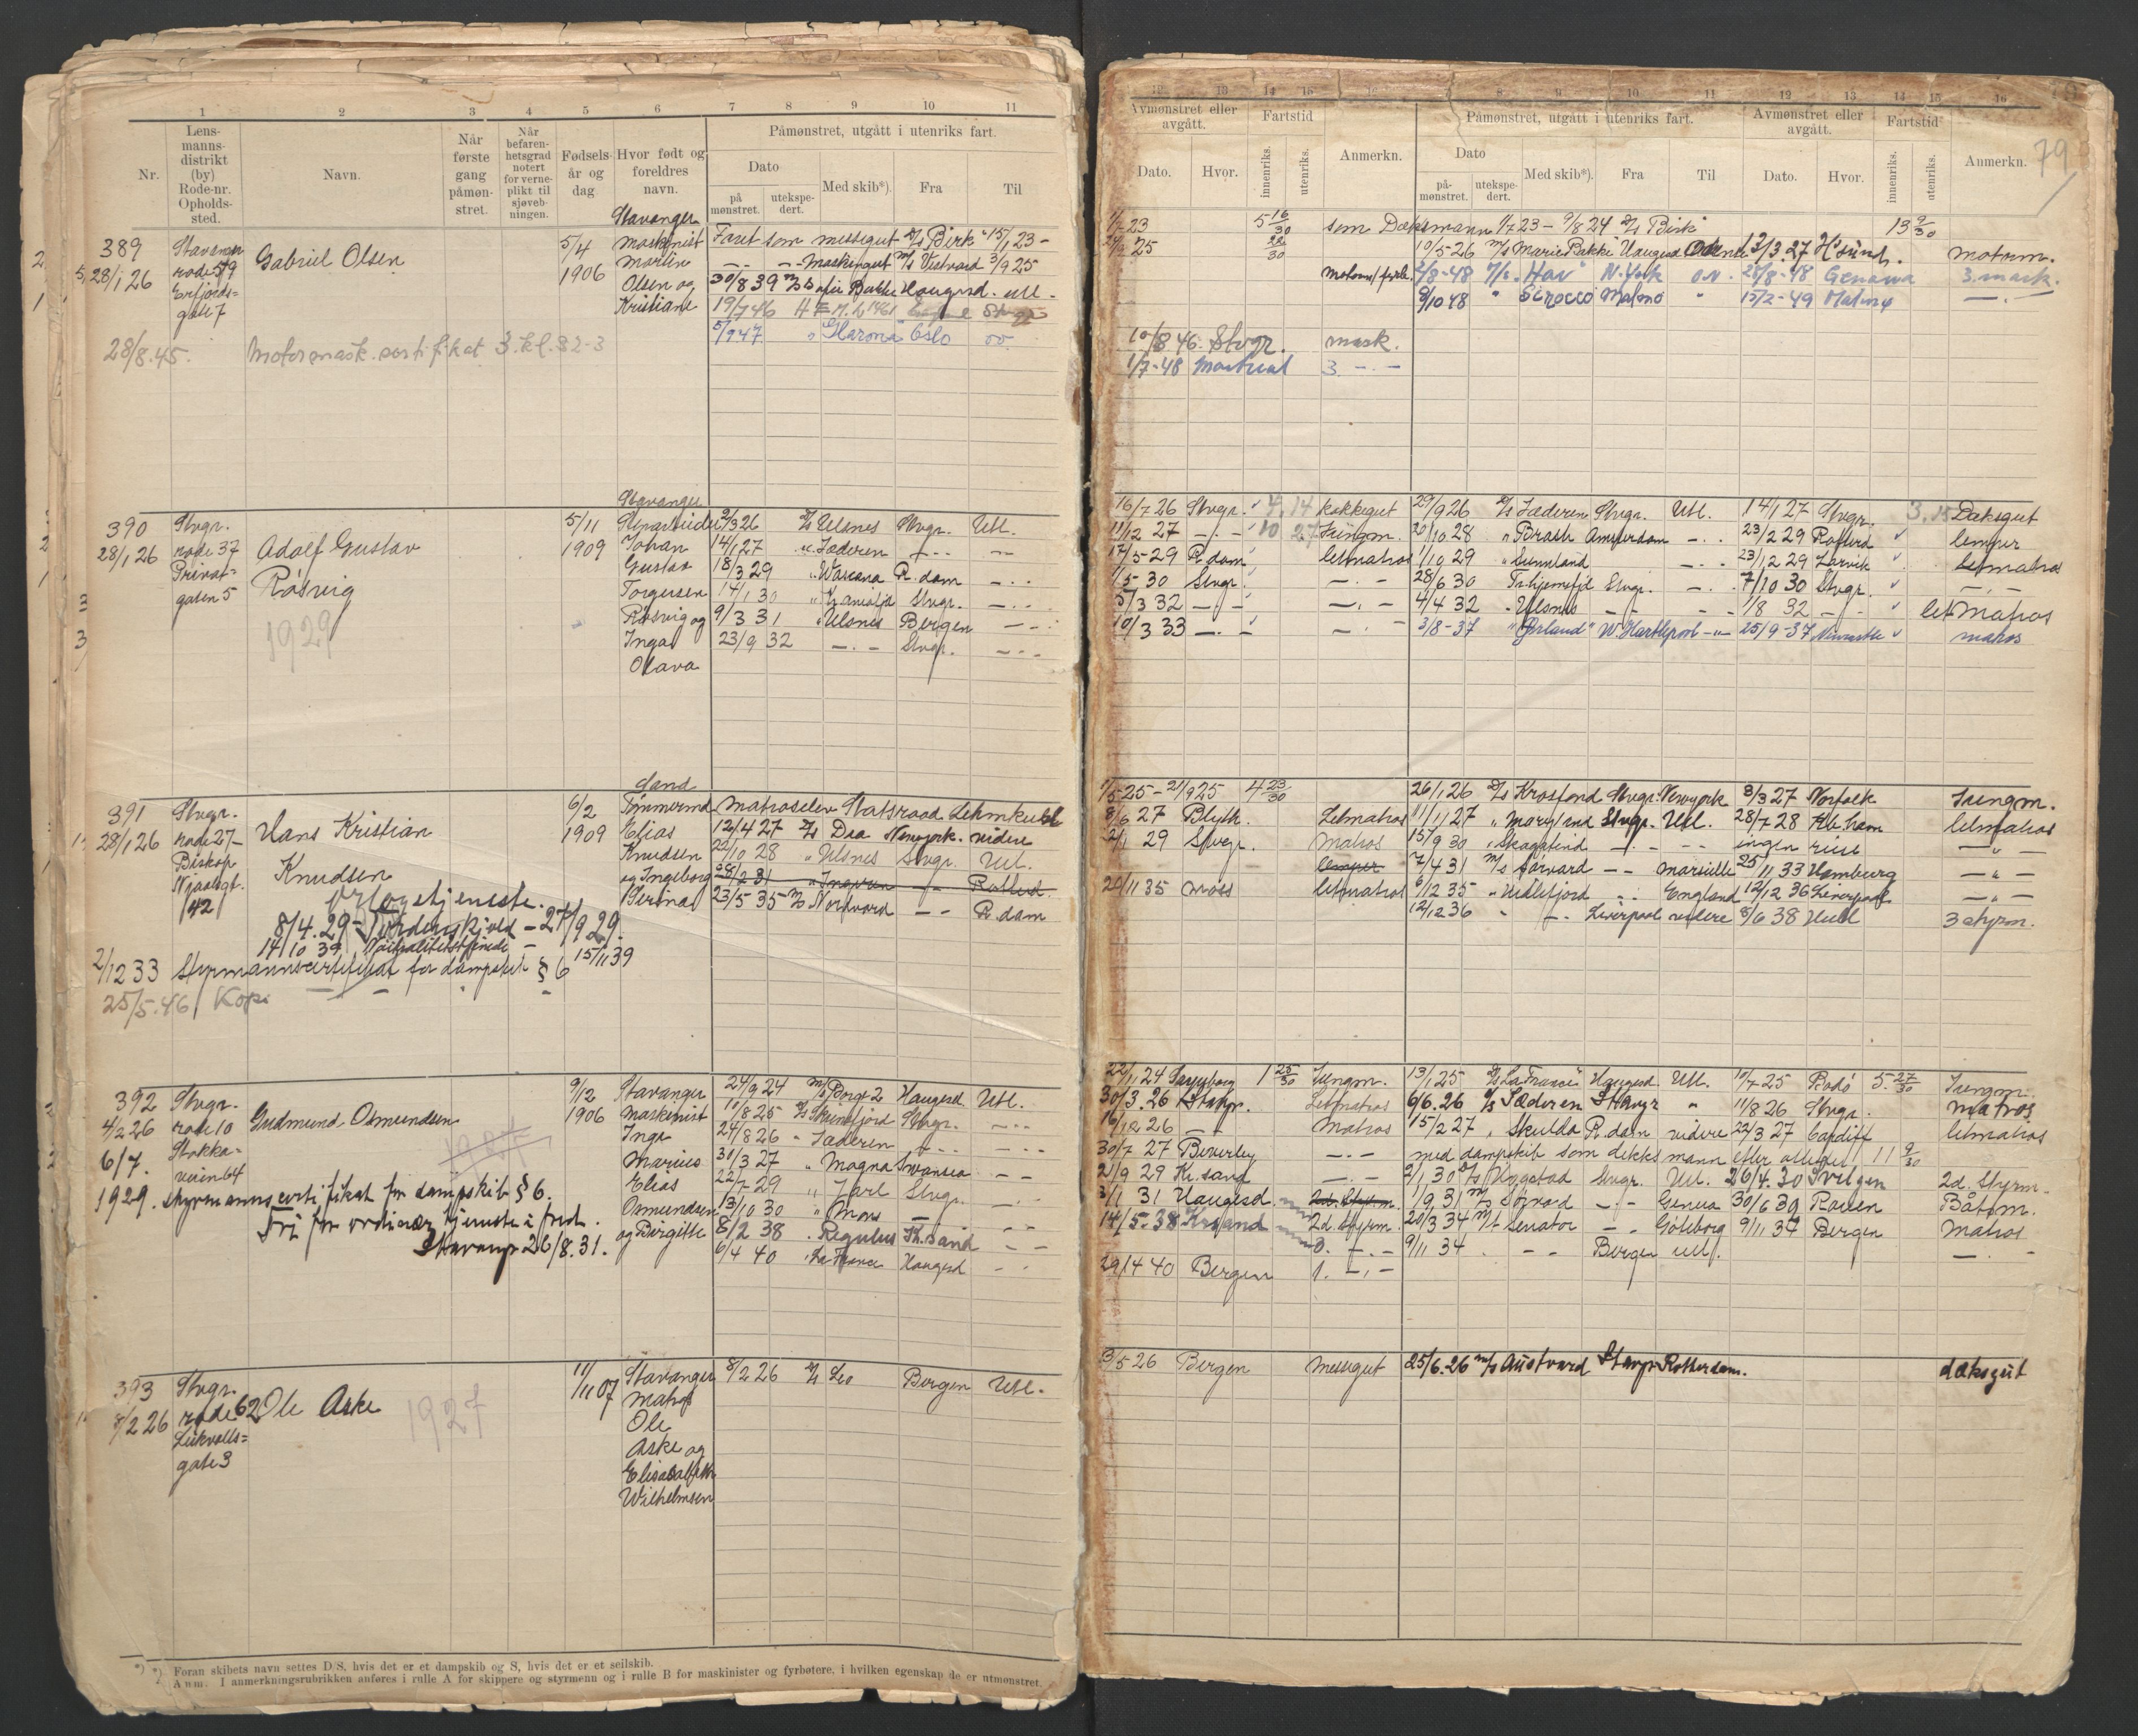 1 2 3 4 5 6 7 8 9 10 11
Nr.
Lens-
manns-
distrikt
(by)
Rode-nr.
Opholds-
sted.
Navn.
Når
første
gang
påmøn-
stret.
Når
befaren-
hetsgrad
notert
for verne-
plikt til
sjøveb-
ningen.
Fødsels-
år og
dag
Hvor født og
foreldres
navn.
Påmønstret, utgått i utenriks fart.
Dato
på
mønstret.
utekspe-
dert.
Med skib*).
Fra
Til
Stavanger
389
28/1 26
Stavanger
rode 59
Erfjords=
gate 7
Gabriel Olsen
5/4
1906
Maskinist
Martin
Olsen og
Kristiane
Faret som messegut D/S Birk 15/1 23 -
— — Maskingut M/S Vestvard 3/9 25
30/8 39 M/S Marie Bakke Haugesd. Utl.
19/7 46
5/9 47 " Harma Oslo ov.
28/8.45. Motormask.sertifikat 3.kl. 82-3
Stavanger
390
28/1 26
Stvgr.
rode 37
Privat=
gaten 5
Adolf Gustav
Røsvig
1929
5/11
1909
Johan
Gustav
Torgersen
Røsvig og
Inga
Olava
2/3 26 D/S Ulsnes Stvgr. Utl.
14/1 27 " Jæderen — " —
18/3 29 " Wascana R.dam — " —
14/1 30 Stvgr. — " —
9/3 31 " Ulsnes Bergen — " —
23/9 32 — " — Stvgr. — " —
Sand
391
28/1 26
Stvgr.
rode 27-
Biskop
Njaalsgt.
42
Hans Kristian
Knudsen
6/2
1909
Tømmermd
Elias
Knudsen
og Ingeborg
Serina
Matroselev Statsraad Lehmkuhl
12/4 27 D/S Dea Newyork. videre
22/10 28 " Ulsnes Stvgr. Utl.
28/2 31 " Ingeren — " — Rotterd.
23/5 35 M/S Nordvard — " — R.dam
Orlogstjeneste.
8/4.29 - Tordenskjold - 27/9 29.
14/10 39 Nøitralitetstjeneste - 15/11 39
2/12 33 Styrmannscertifikat for dampskib § 6
25/5.46 Kopi
392
4/2 26
6/7.
1929.
Stvgr.
rode 10
Stokka=
veien 64
Gudmund Osmundsen
9/12
1906
Stavanger
Maskinist
Inge
Marius
Elias
Osmundsen
og Birgitte
24/9 24 M/S Borgs 2 Haugesd Utl.
10/8 25 D/S Skiensfjord Stvgr. — " —
24/8 26 " Jæderen — " — — " —
30/3 27 " Magna Swansea — " —
22/7 29 " Jarl Stvgr. — " —
13/10 30 " Mars — — " —
8/2 38 " Regulus Kr.sand — " —
6/4 40 " La France Haugesd — " —
styrmannscertifikat for dampskib § 6.
Fri for ordinær tjeneste i fred.
Stavanger 26/8.31.
393
8/2 26
Stvgr.
rode 62
gate 3
Ole Aske
1927
11/11 07
Stavanger
Matros
Ole
Aske og
Elisabeth
Wilhelmsen
8/2 26 D/S Leo Bergen Utl.
*) Foran skibets navn settes D/S, hvis det er et dampskib og S, hvis det er et seilskib.
Anm. I anmerkningsrubrikken anføres i rulle A for skippere og styrmenn og i rulle B for maskinister og fyrbøtere, i hvilken egenskap de er utmønstret.
12 13 14 15 16 7 8 9 10 11 12 13 14 15 16
79
Avmønstret eller
avgått.
Fartstid
Påmønstret, utgått i utenriks fart.
Avmønstret eller
avgått.
Fartstid
Dato.
Hvor.
innenriks.
utenriks.
Anmerkn.
Dato
på-
mønstret.
utekspe-
dert.
Med skib*).
Fra
Til
Dato.
Hvor.
innenriks.
utenriks.
Anmerkn.
1/7 23 5 16/30 som Dæksmann 1/7 23 - 9/8 24 D/S Birk 13 9/30
10/5-26 M/S Marie Bakke Haugesd Odense 12/3 27 H'sund. motorm.
2/8-48 M/S "Hav" N.York o.v. 28/8-48 Genova 3. mask.
9/10 48 " Sirocco Malmø " 15/2-49 Malmø — " —
10/8 46. Stvgr. mask.
1/7-48 Montreal 3. — " —
16/7 26 Stvgr. 4,14 kokkegut 29/9 26 D/S Jæderen Stvgr. Utl. 14/1 27 Stvgr. 3,15 Daksgut
11/12 27 — " — 10 27 Jungm. 20/10 28 " Brask Amsterdam — " . 23/2 29 Rotterd lemper
17/5-29 R.dam letmatros 1/10 29 " Sunnland — " . 23/12 29 Larvik letmatros
1/5-30 Stvgr. — " — 28/6 30 Stvgr. — " . 7/10 30 Stvgr. — " —
5/3 32 — " — — " — 4/4 32 " Ulsnes — " — 1/8 32 — " — let Matros
10/3 33 — " — — " — 3/8-37 "Ørland" W.Hartlepool — " — 25/9-37 Newcastle matros
1/5-25 - 21/9 25 4 23/30 26/1 26 D/S Krosfond Stvgr. Newyork 3/3 27 Norfolk Jungm.
8/6 27 Blyth. Letmatros 11/11 27 " Maryland Stvgr. Utl. 28/7 28 Kb.havn letmatros
21/1 29 Stvgr. Matros 15/9 30 " Skagatind — " — ingen reise — " —
lemper 7/4 31 M/S Sørvard — " — Marseille 25/11 33 Hamburg — " —
20/11 35 Moss letmatros 6/12 35 " Hedlefjord — " England 12/12 36 Liverpool — " —
12/12 36 " — " — Liverpool videre 8/6 38 Hull 3 styrm.
22/11 24 Sarpsborg 1 25/30 Jungm. 13/1 25 D/S La France Haugesd. Utl. 10/7-25 Bodø 5. 27/30 Jungm.
30/3.26 Stavgr. Letmatros 6/6.26 D/S Jæderen Stavgr " 11/8 26 Stvgr. matros
16/12 26 — " — Matros 15/2 27 " Skulda R.dam videre 22/3 27 Cardiff letmatros
30/7 27 Beverley — " — med dampskib som dekksmann efter attester 11 9/30
2/9 29 Kr.sand — " — 2/1 30 D/S Hogstad Stvgr. Utl. 26/4.30 Svelgen 2d. Styrm.
3/1 31 Haugesd. 2d. Styrm. 1/9 31 M/S Sørvard — " — Genua 30/6 39 Båtsm.
14/5-38 Kr.sand 2d. Styrm. 20/3 34 M/T Senator — " — Göteborg 9/11 34 Bergen Matros
3. — " — 9/11 34 — " — Bergen utl. — " —
29/4 40 Bergen 1. — " —
3/5 26 Bergen messegut 25/6.26 M/S Austvard Stavgr Rotterdam. dæksgut